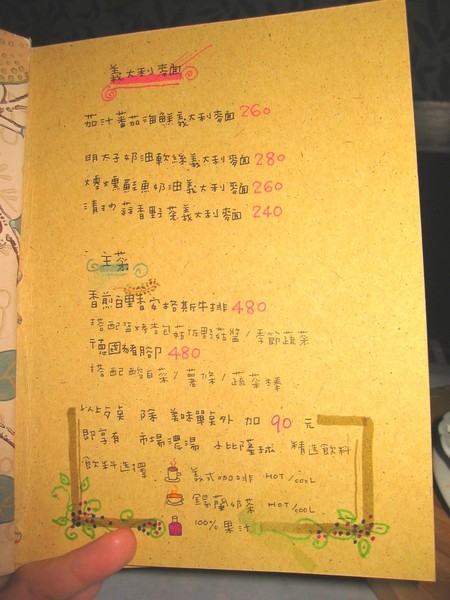 義大利麵
茄汁蕃茄海鮮義大利麵 260
明太子奶油軟絲義大利麵 280
燻鮭魚奶油義大利麵 260
清炒蒜香野菜義大利麵 240
主菜
香煎白里香安格斯牛排 480
搭配 烤杏包菇佐野菇醬/季節蔬菜
德國豬腳 480
搭配酸白菜/薯條/蔬菜棒
以上 除 美味單點外 加 90 元
即享有 市場濃湯 精選飲料
飲料選擇
義式咖啡 HOT/COOL
錫蘭奶茶 HOT/COOL
100% 果汁